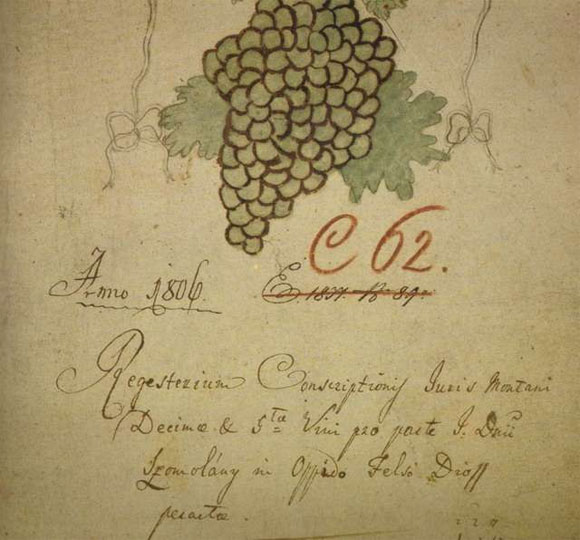 C 62.
Anno 1806.
E. 1837. N. 89.
Regesterium Conscriptionis Juris Montani
Decimæ & 5tæ Vini pro parte I. Dnii
Szomolány in Oppido Felsö Dioss
peractæ.